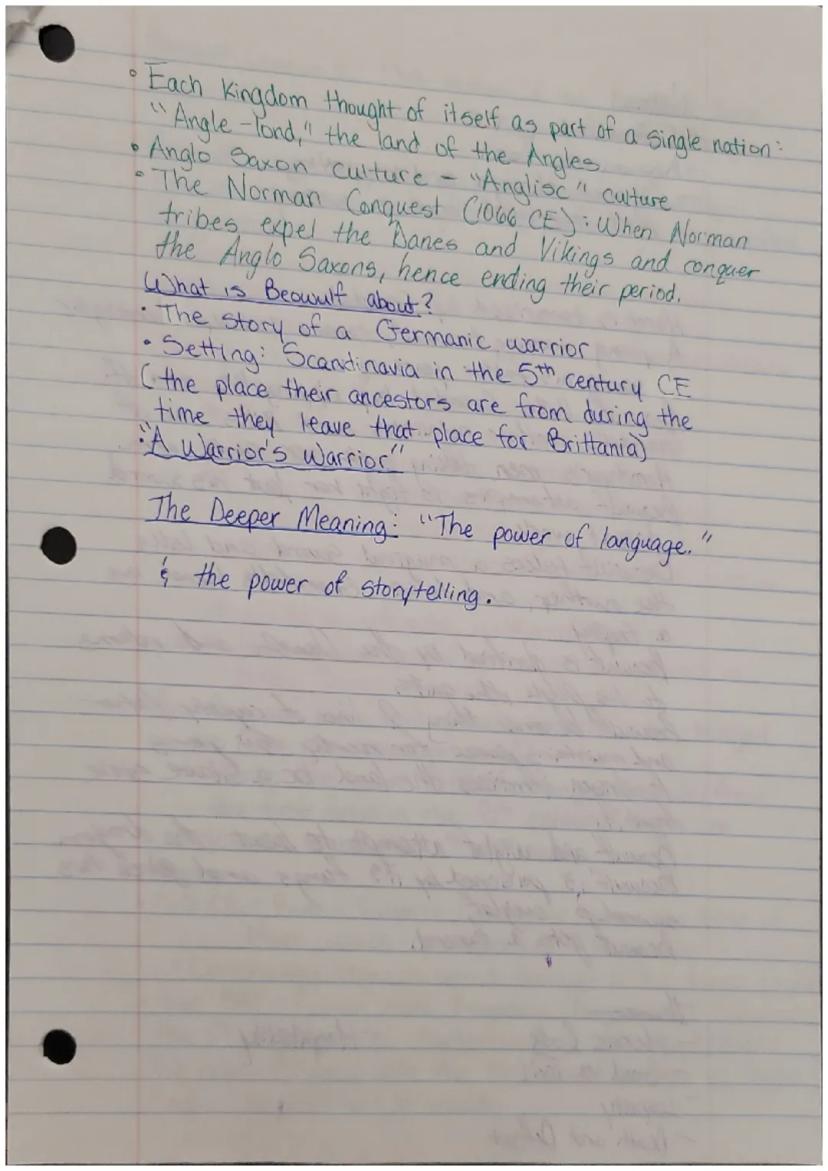 • Each Kingdom thought of itself as part of a single nation:
"Angle-lond," the land of the Angles
• Anglo Saxon culture - "Anglisc" culture
• The Norman Conquest (1066 CE): When Norman
tribes expel the Danes and Vikings and conquer
the Anglo Saxons, hence ending their period.
What is Beowulf about?
• The story of a Germanic warrior
• Setting: Scandinavia in the 5th century CE
(the place their ancestors are from during the
time they leave that place for Brittania)
• "A Warrior's Warrior"
The Deeper Meaning: "The power of language."
& the power of storytelling.